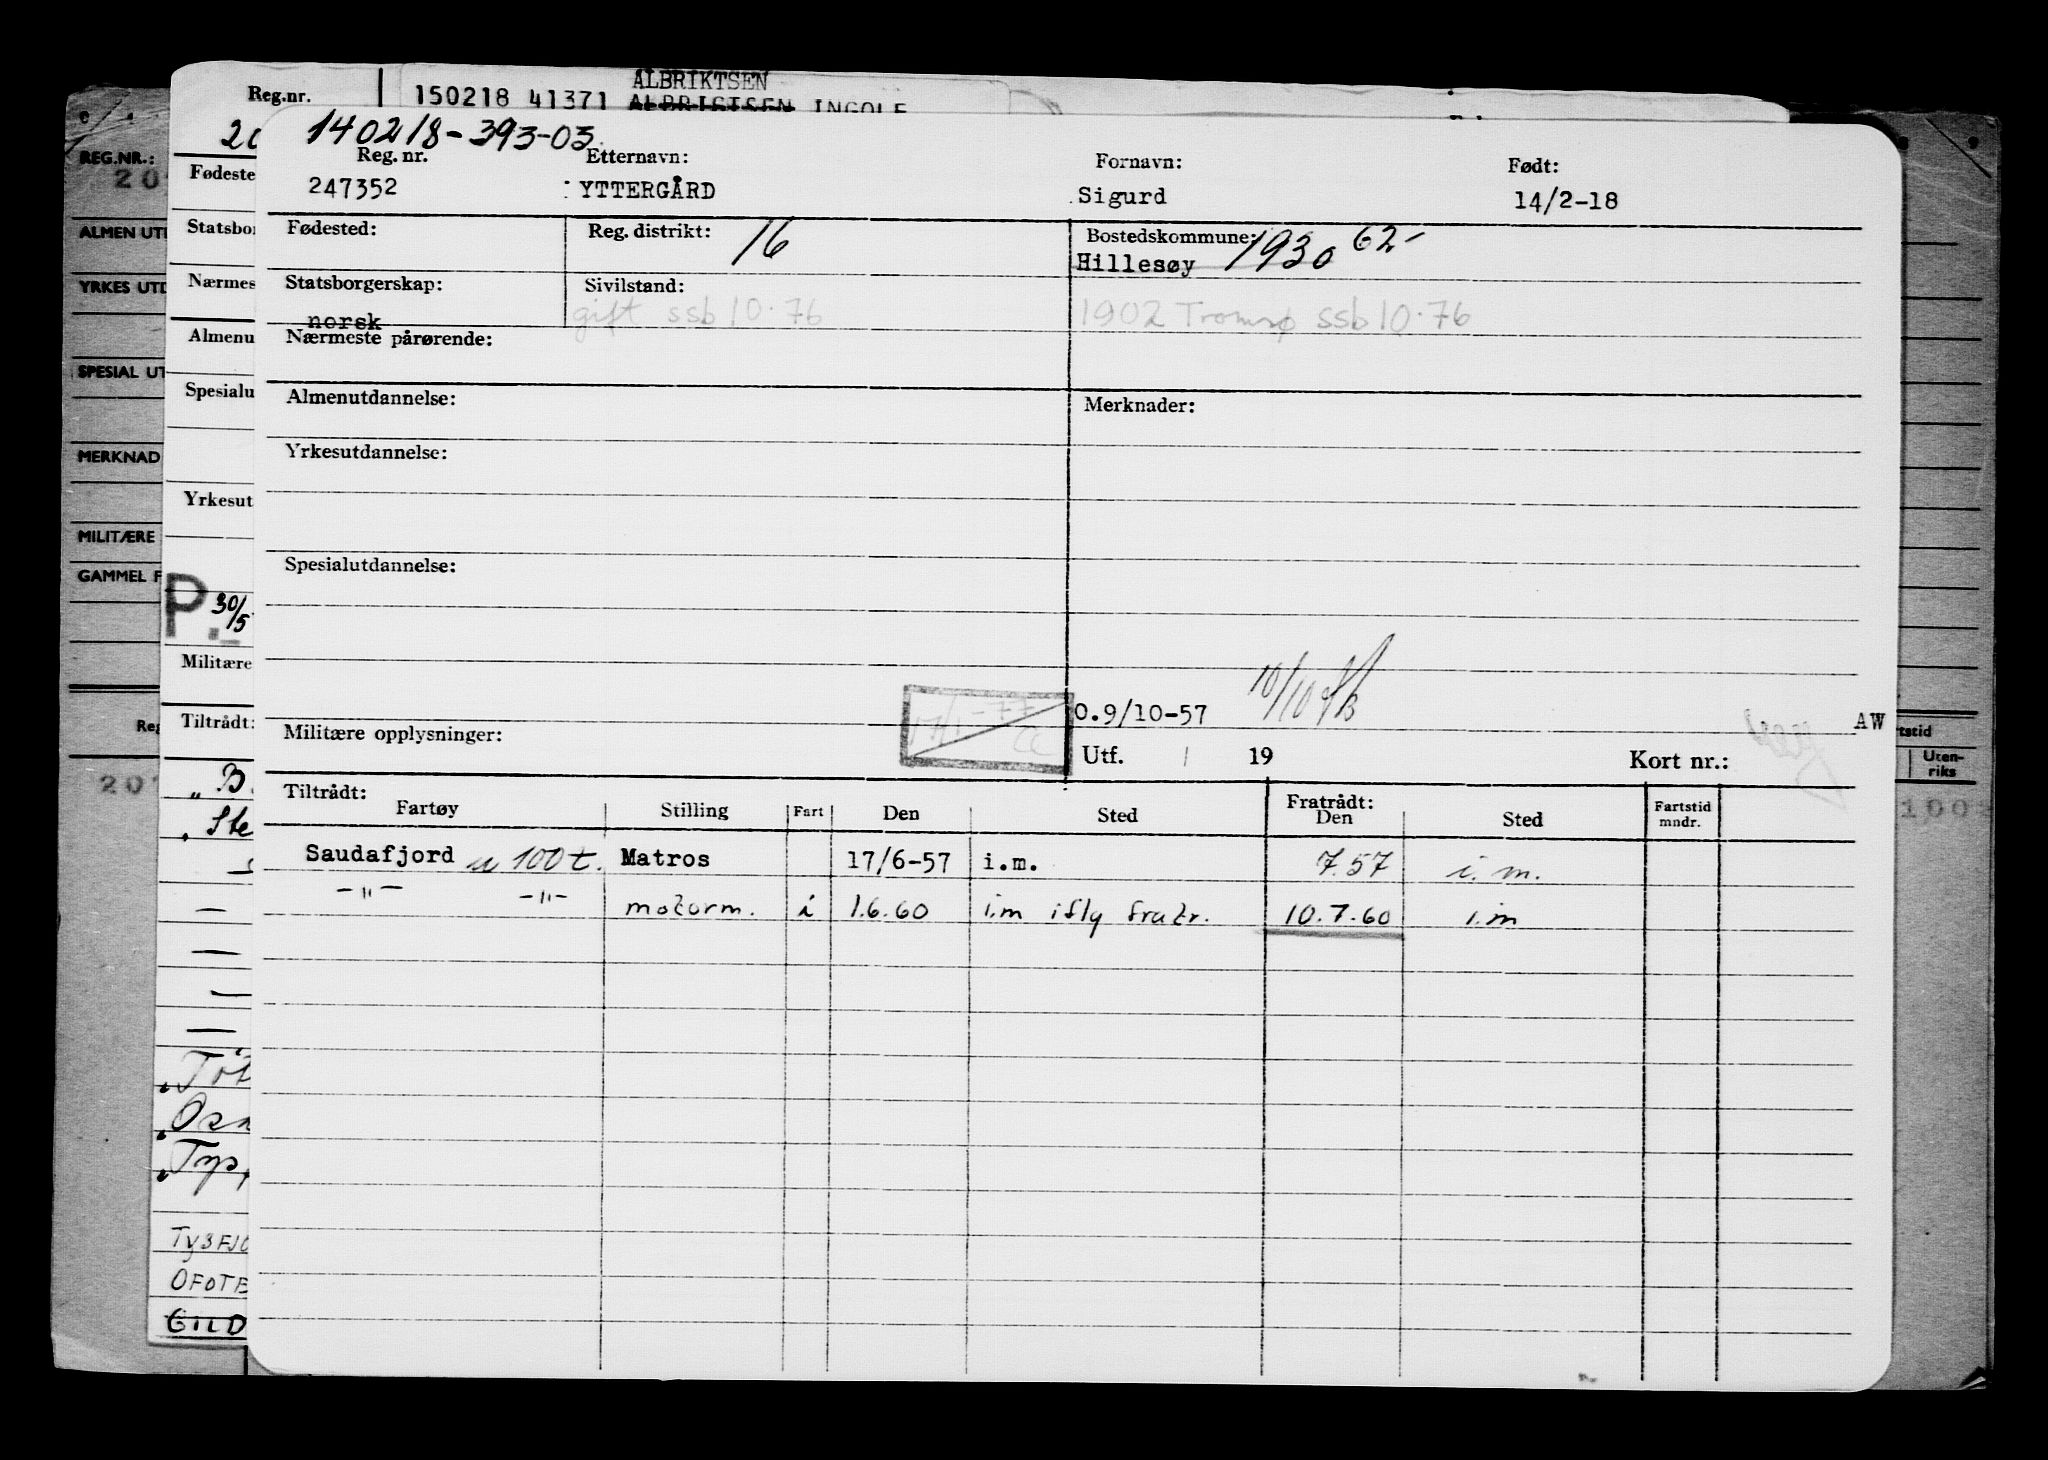 ALBRIKTSEN
Reg.nr. 150218 41371 ALBRIGTSEN INGOLF
140218-393-03
Reg. nr. Etternavn: Fornavn: Født:
247352 YTTERGÅRD Sigurd 14/2-18
Fødested: Reg. distrikt: 16 Bostedskommune: 1930 62-
Hillesøy
Statsborgerskap: Sivilstand:
norsk gift ssb 10.76 1902 Tromsø ssb 10.76
Nærmeste pårørende:
Almenutdannelse: Merknader:
Yrkesutdannelse:
Spesialutdannelse:
0.9/10-57 10/10 AW
Militære opplysninger: Utf. 19 Kort nr.:
Tiltrådt: Fratrådt:
Fartøy Stilling Fart Den Sted Den Sted Fartstid mndr.
Saudafjord u 100 t. Matros 17/6-57 i.m. 7.57 i.m.
-"- -"- motorm. i 1.6.60 i.m ifly fratr. 10.7.60 i.m
REG.NR.:
20
ALMEN UTD
YRKES UTD
SPESIAL UT
MERKNAD
MILITÆRE
GAMMEL F
Reg
20
Fødeste
Statsbor
Nærmes
Almenu
Spesialu
Yrkesut
P. 30/5
Militære
Tiltrådt:
„ B.
Ste
Töt
Osa
Typ
TYSFJO
OFOTE
GILD
rtstid
Uten-
riks
100